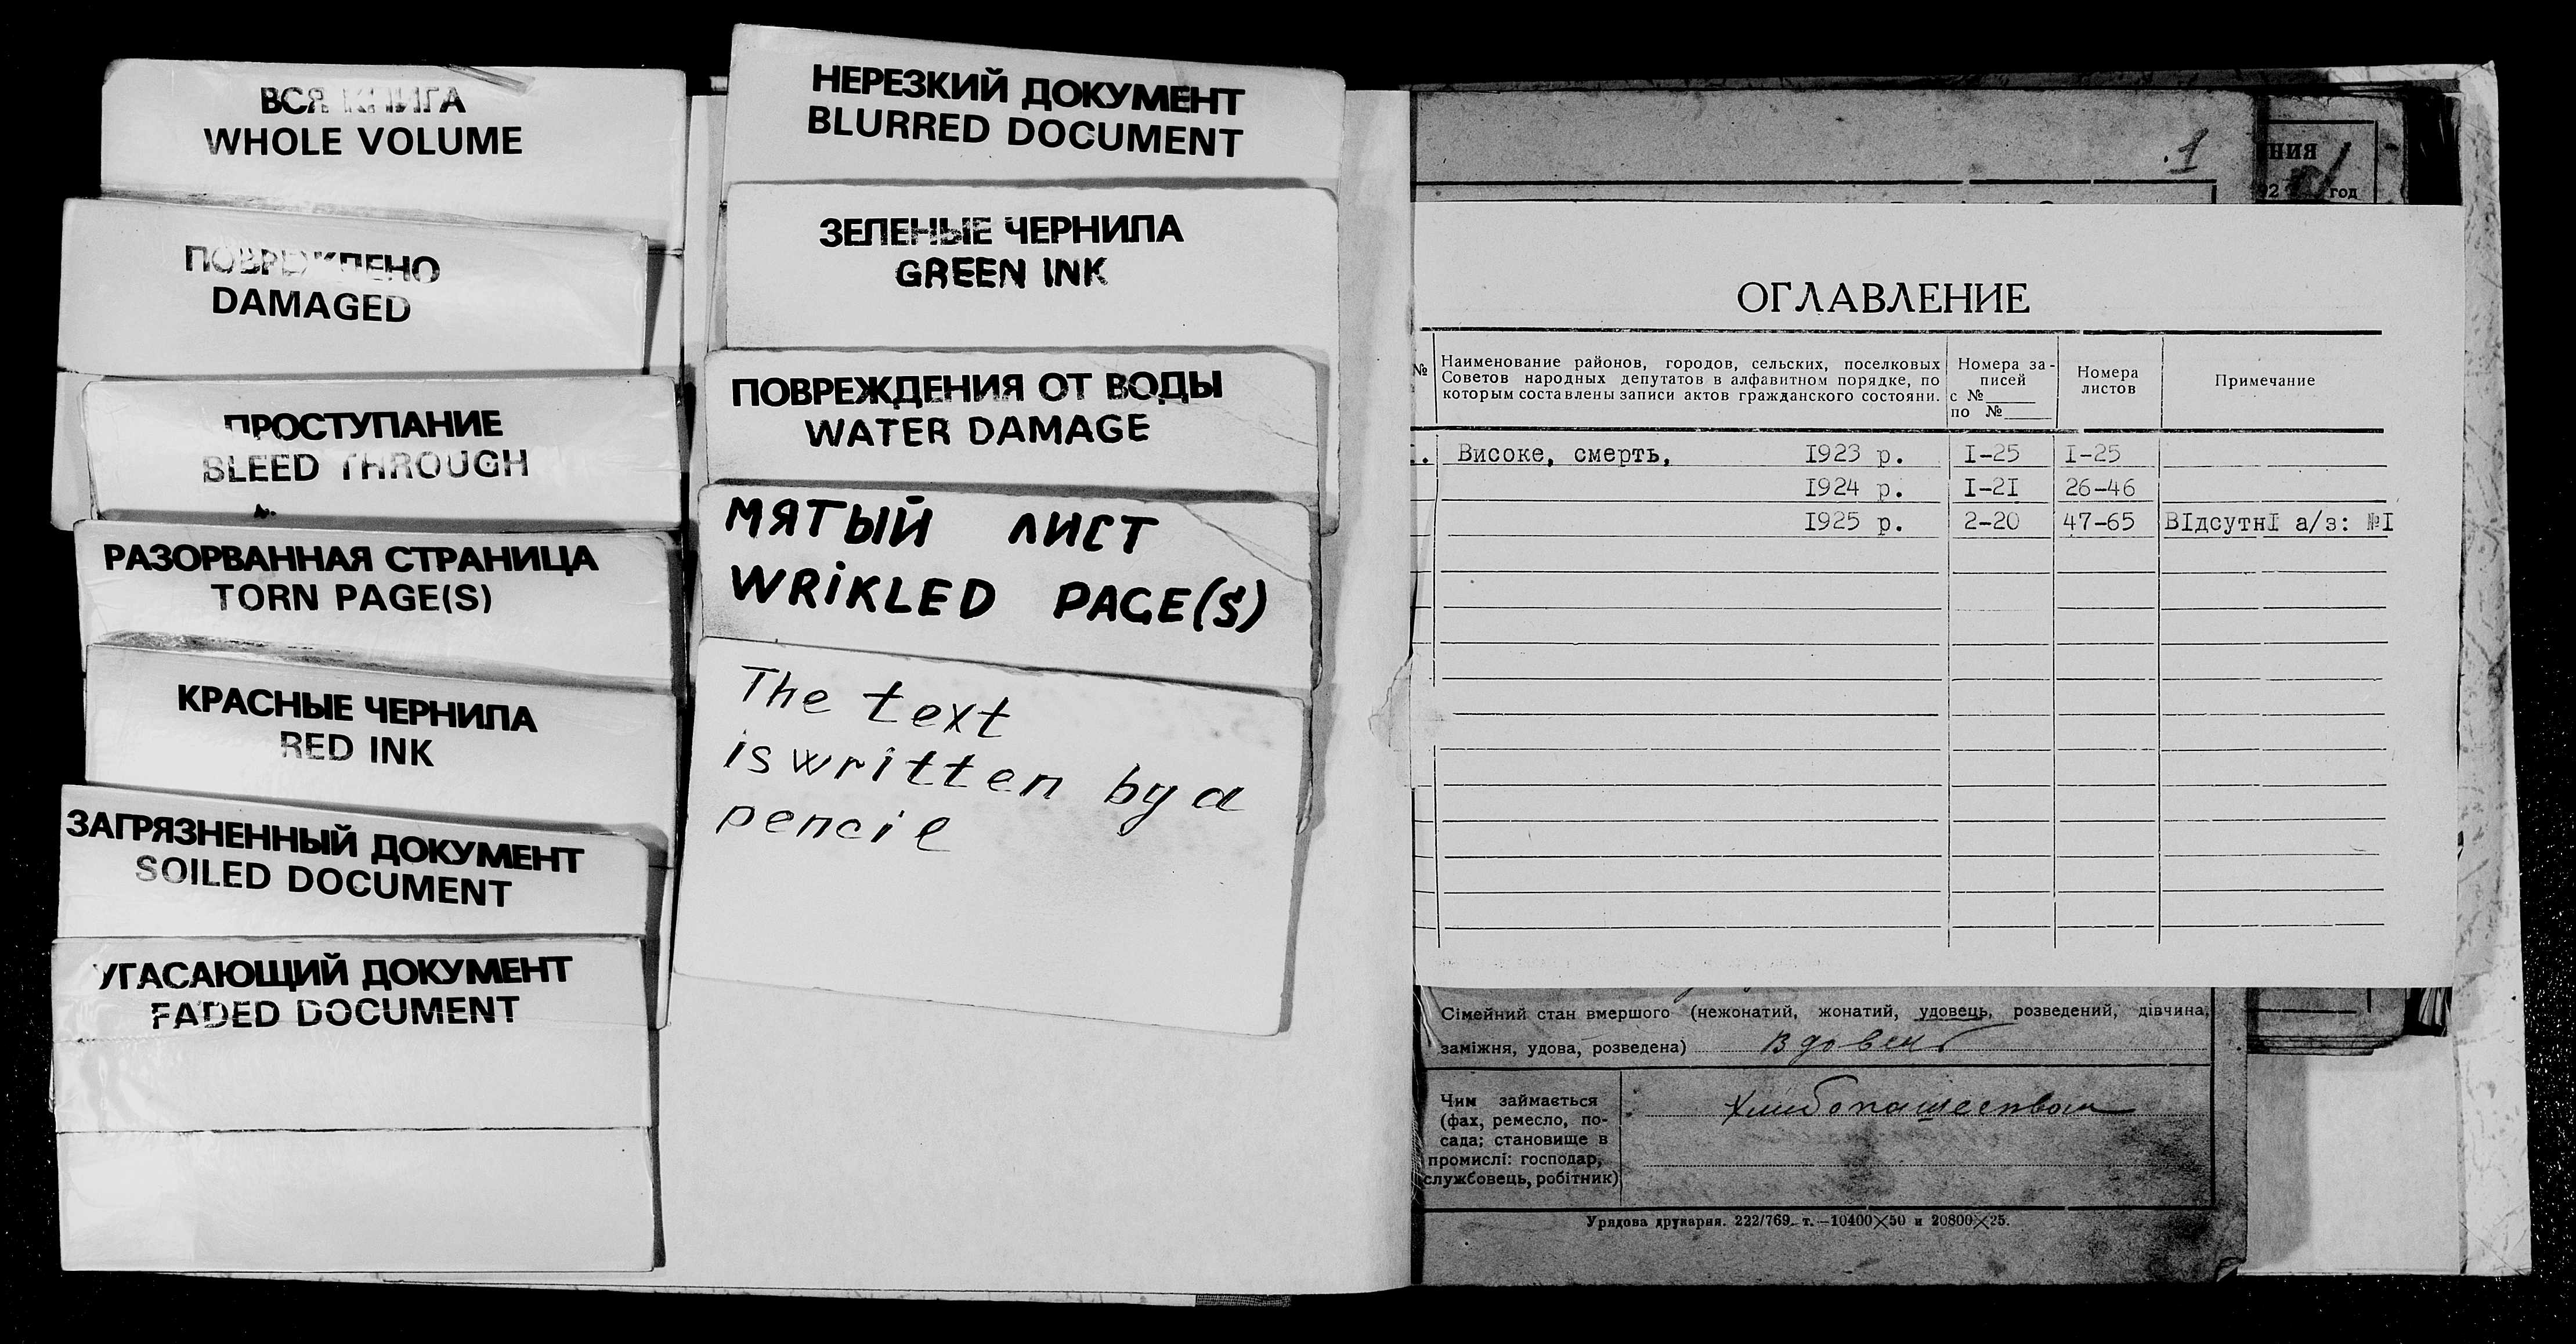 ВСЯ КНИГА
WHOLE VOLUME
ПОВРЕЖДЕНО
DAMAGED
ПРОСТУПАНИЕ
BLEED THROUGH
РАЗОРВАННАЯ СТРАНИЦА
TORN PAGE(S)
КРАСНЫЕ ЧЕРНИЛА
RED INK
ЗАГРЯЗНЕННЫЙ ДОКУМЕНТ
SOILED DOCUMENT
УГАСАЮЩИЙ ДОКУМЕНТ
FADED DOCUMENT
НЕРЕЗКИЙ ДОКУМЕНТ
BLURRED DOCUMENT
ЗЕЛЕНЫЕ ЧЕРНИЛА
GREEN INK
ПОВРЕЖДЕНИЯ ОТ ВОДЫ
WATER DAMAGE
МЯТЫЙ ЛИСТ
WRiKLED PAGE(S)
The text
is written by a
pencil
.1
ния
92 год
ОГЛАВЛЕНИЕ
№ Наименование районов, городов, сельских, поселковых
Советов народных депутатов в алфавитном порядке, по
которым составлены записи актов гражданского состояни.
Номера за-
писей
с №
по №
Номера
листов
Примечание
Високе, смерть, I923 р. I-25 I-25
I924 р. I-2I 26-46
I925 р. 2-20 47-65 ВIдсутнI а/з: №I
Сімейний стан вмершого (нежонатий, жонатий, удовець, розведений, дівчина,
заміжня, удова, розведена) Вдовець
Чим займається
(фах, ремесло, по-
сада; становище в
промислі: господар,
службовець, робітник)
Урядова друкарня. 222/769. т.—10400×50 и 20800×25.